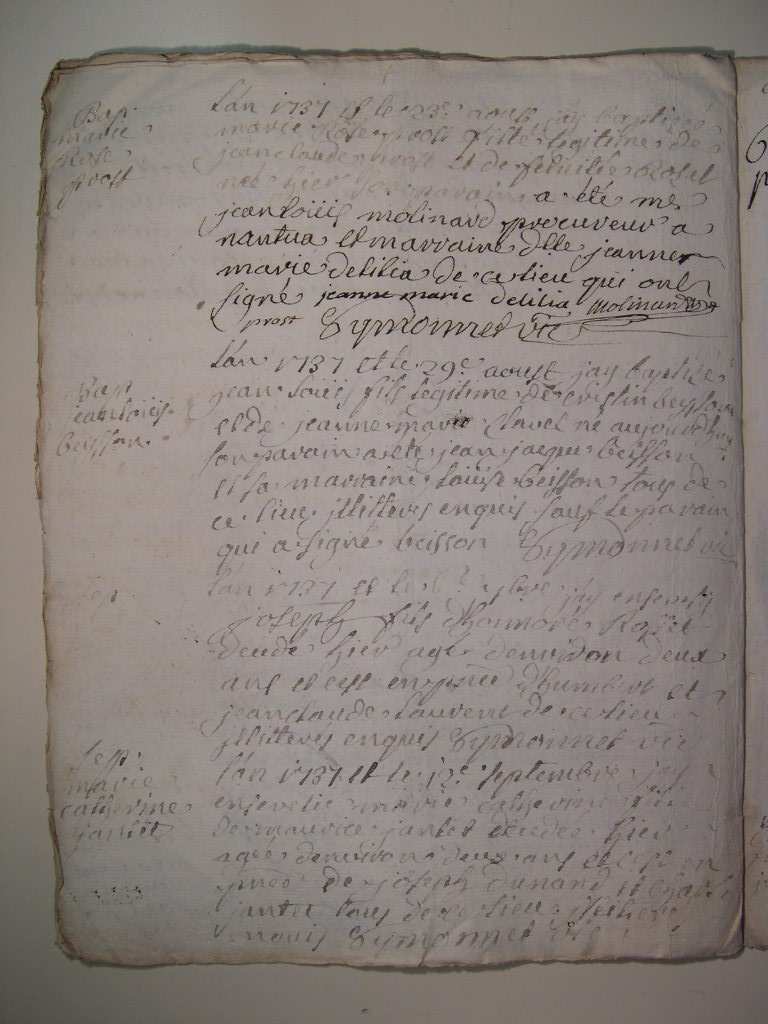 Bap.
marie
Rose
prost
L'an 1737 et le 23e aoust jay baptizé
marie Rose prost fille legitime de
jean claude prost et de
née hier son parain a été me
jean loüis molinard procureur a
nantua et marraine dlle jeanne
marie delilia de ce lieu qui ont
signé jeanne marie delilia molinard
prost Eymonnet vic
Bap
jean loüis
beysson
L'an 1737 et le 29e aoust jay baptizé
jean loüis fils legitime de cristin beysson
et de jeanne marie clavel né aujourdhuy
son parain a ete jean jacque beisson
et sa marraine loüise beisson tous de
ce lieu jllitters enquis sauf le parain
qui a signé beisson Eymonnet vic
sep
L'an 1737 et le 7bre jay ensevely
joseph fils dhonnoré Rosset
decedé hier agé denvidon deux
ans et cest en pnce dhumbert et
jean claude laurent de ce lieu
jllitters enquis Eymonnet vic
sep.
marie
catherine
jantet
L'an 1737 et le 12e septembre jay
ensevelie marie catherine
de maurice jantet decedee hier
agée denviron deux ans et cest en
pnce de joseph dunand et
jantet tous de ce lieu
Eymonnet vic